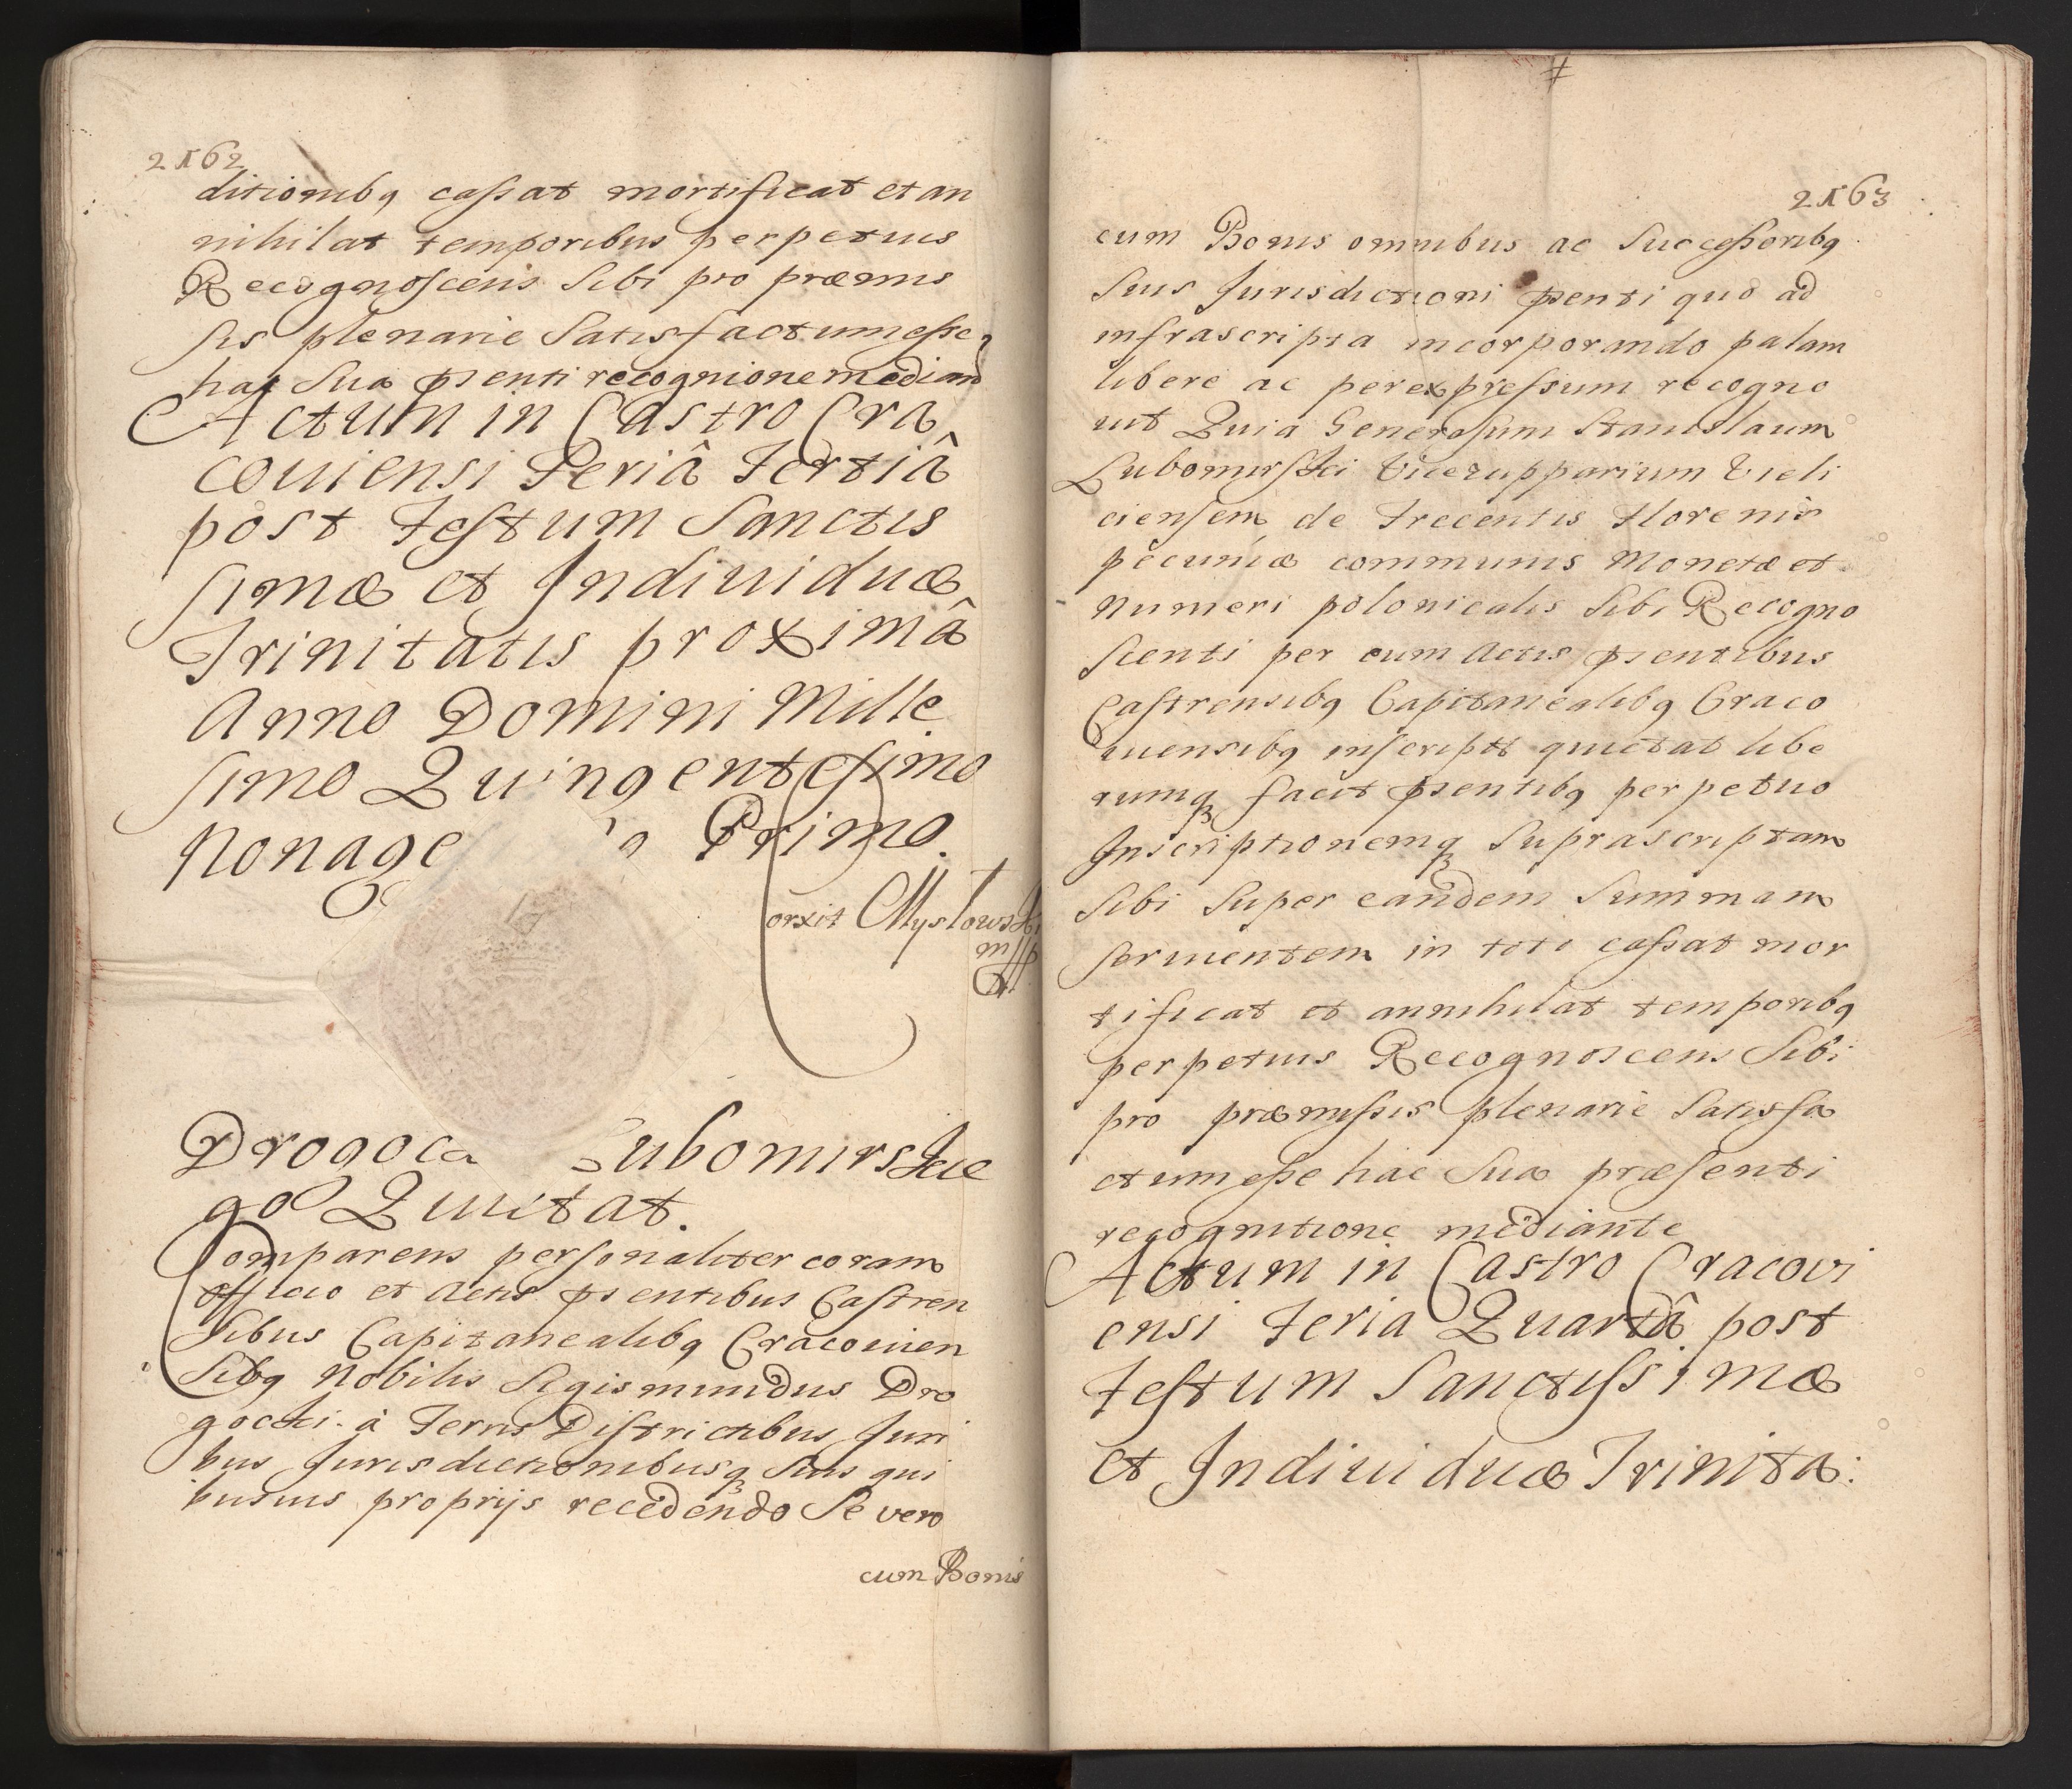 2162
ditionibq cassat mortificat et an
nihilat temporibus perpetuis
Recognoscens Sibi pro præmis
sis plenarie Satisfactum esse
hac Sua psenti recognione median
Actum in Castro Cra
couiensi Feriâ Tertiâ
post Festum Sanctis
simæ et Indiuiduæ
Trinitatis proximâ
Anno Domini Mille
simo Quingentesimo
Nonage o Primo.
orxit Mysłowski
mpp
Drogoca Lubomirskie
go Quitat.
Comparens personaliter coram
Officio et Actis psentibus Castren
sibus Capitanealibq Cracouien
Sibq Nobilis Sigismundus Dro
gocki à Terris Districtibus Juri
bus Jurisdictionibusq Suis qui
busuis proprijs recedendo Se vero
cum Bonis
2163
cum Bonis omnibus ac Successoribq
Suis Jurisdictioni psenti quo ad
infrascripta incorporando palam
libere ac per expressum recogno
uit Quia Generosum Stanislaum
Lubomirski Vicezupparium Vieli
ciensem de Trecentis Florenis
pecuniæ communis Monetæ et
Numeri polonicalis Sibi Recogno
scenti per eum Actis psentibus
Castrensibq Capitanealibq Craco
uiensibq inscriptt quietat libe
rumq facit psentibq perpetuo
Inscriptionemq Suprascriptam
Sibi Super eandem Summam
seruientem in toto cassat mor
tificat et annihilat temporibq
perpetuis Recognoscens Sibi
pro præmissis plenarie Satisfa
ctum esse hac Sua præsenti
recognitione mediante
Actum in Castro Cracovi
ensi Feria Quartâ post
Festum Sanctissimæ
et Indiuiduæ Trinita: